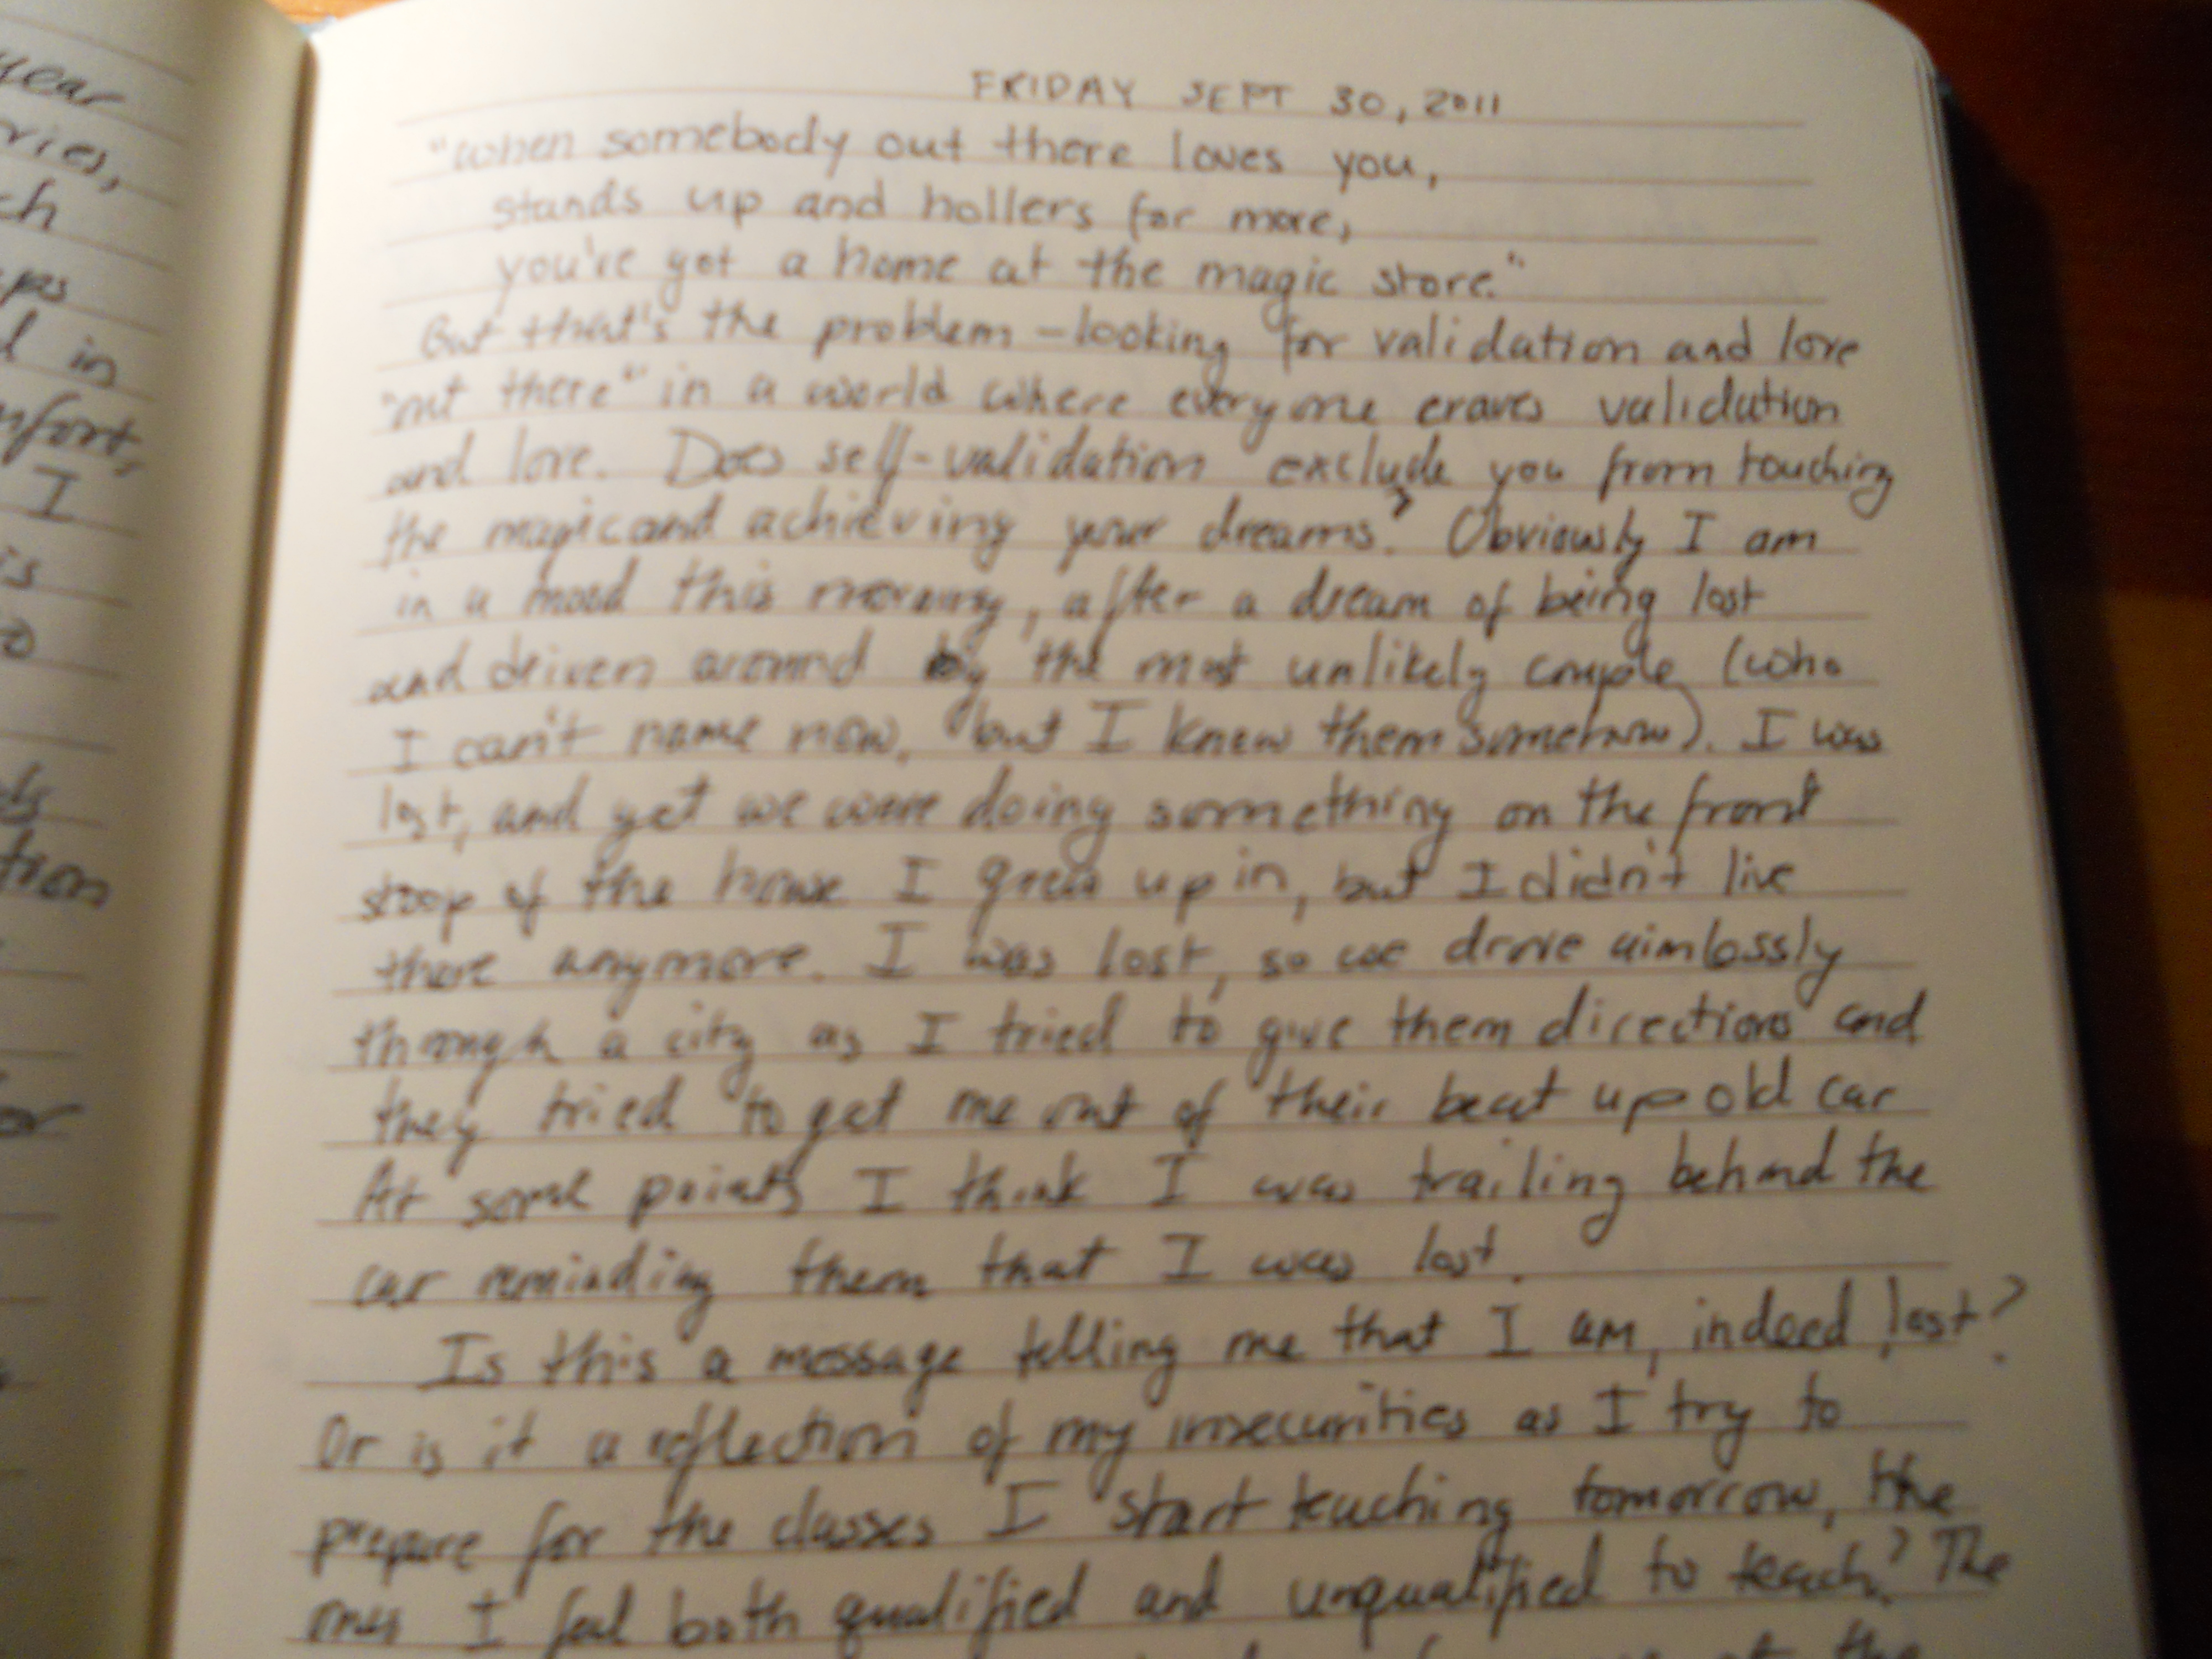 year
ries,
ch
ps
d in
mfort,
I
is
to
ds
tion
or
FRIDAY SEPT 30, 2011
"When somebody out there loves you,
stands up and hollers for more,
you've got a home at the magic store."
But that's the problem - looking for validation and love
"out there" in a world where everyone craves validation
and love. Does self-validation exclude you from touching
the magic and achieving your dreams? Obviously I am
in a mood this morning, after a dream of being lost
and driven around by the most unlikely couple (who
I can't name now, but I knew them somehow). I was
lost, and yet we were doing something on the front
stoop of the house I grew up in, but I didn't live
there anymore. I was lost, so we drove aimlessly
through a city as I tried to give them directions and
they tried to get me out of their beat up old car
At some points I think I was trailing behind the
car reminding them that I was lost.
Is this a message telling me that I am, indeed, lost?
Or is it a reflection of my insecurities as I try to
prepare for the classes I start teaching tomorrow, the
ones I feel both qualified and unqualified to teach? The
the